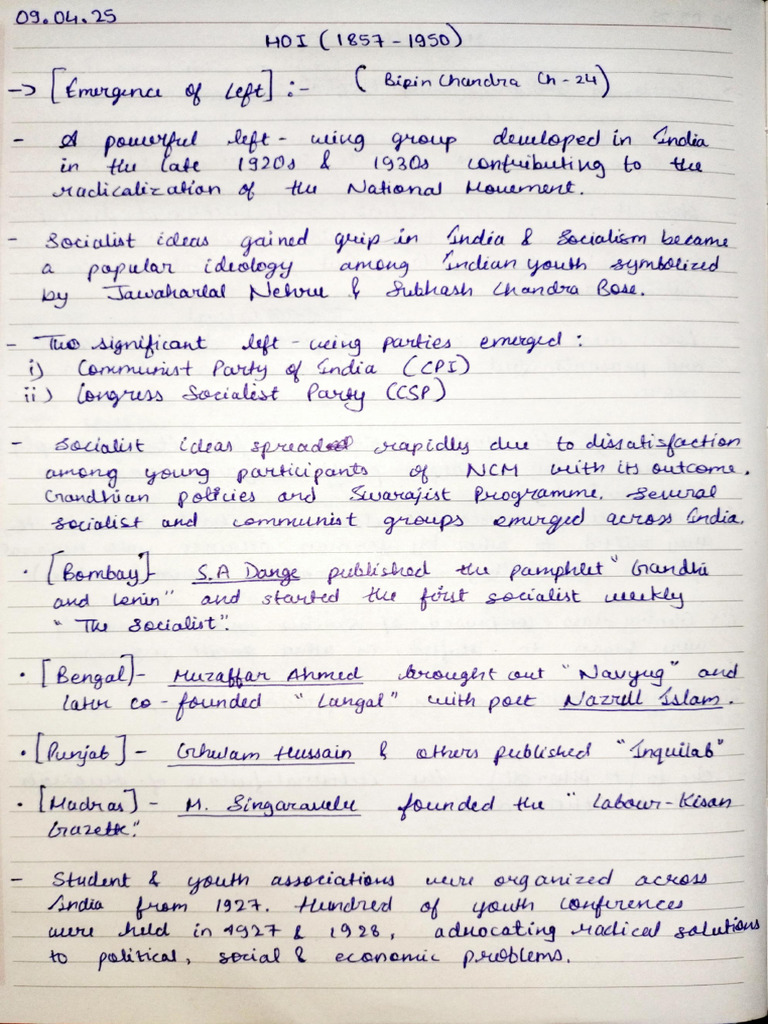 09.04.25
HOI (1857 - 1950)
-> [Emergence of Left] :- ( Bipin Chandra Ch - 24)
- A powerful left - wing group developed in India
in the late 1920s & 1930s contributing to the
radicalization of the National Movement.
- Socialist ideas gained grip in India & Socialism became
a popular ideology among Indian youth symbolized
by Jawaharlal Nehru & Subhash Chandra Bose.
- Two significant left - wing parties emerged :
i) Communist Party of India (CPI)
ii) Congress Socialist Party (CSP)
- Socialist ideas spread rapidly due to dissatisfaction
among young participants of NCM with its outcome.
Gandhian policies and Swarajist Programme. Several
socialist and communist groups emerged across India.
• [Bombay]- S.A Dange published the pamphlet "Gandhi
and Lenin" and started the first socialist weekly
"The Socialist".
• [Bengal]- Muzaffar Ahmed brought out "Navyug" and
later co-founded "Langal" with poet Nazrul Islam.
• [Punjab] - Ghulam Hussain & others published "Inquilab"
• [Madras] - M. Singaravelu founded the "Labour-Kisan
Gazette".
- Student & youth associations were organized across
India from 1927. Hundred of youth conferences
were held in 1927 & 1928, advocating radical solutions
to political, social & economic problems.